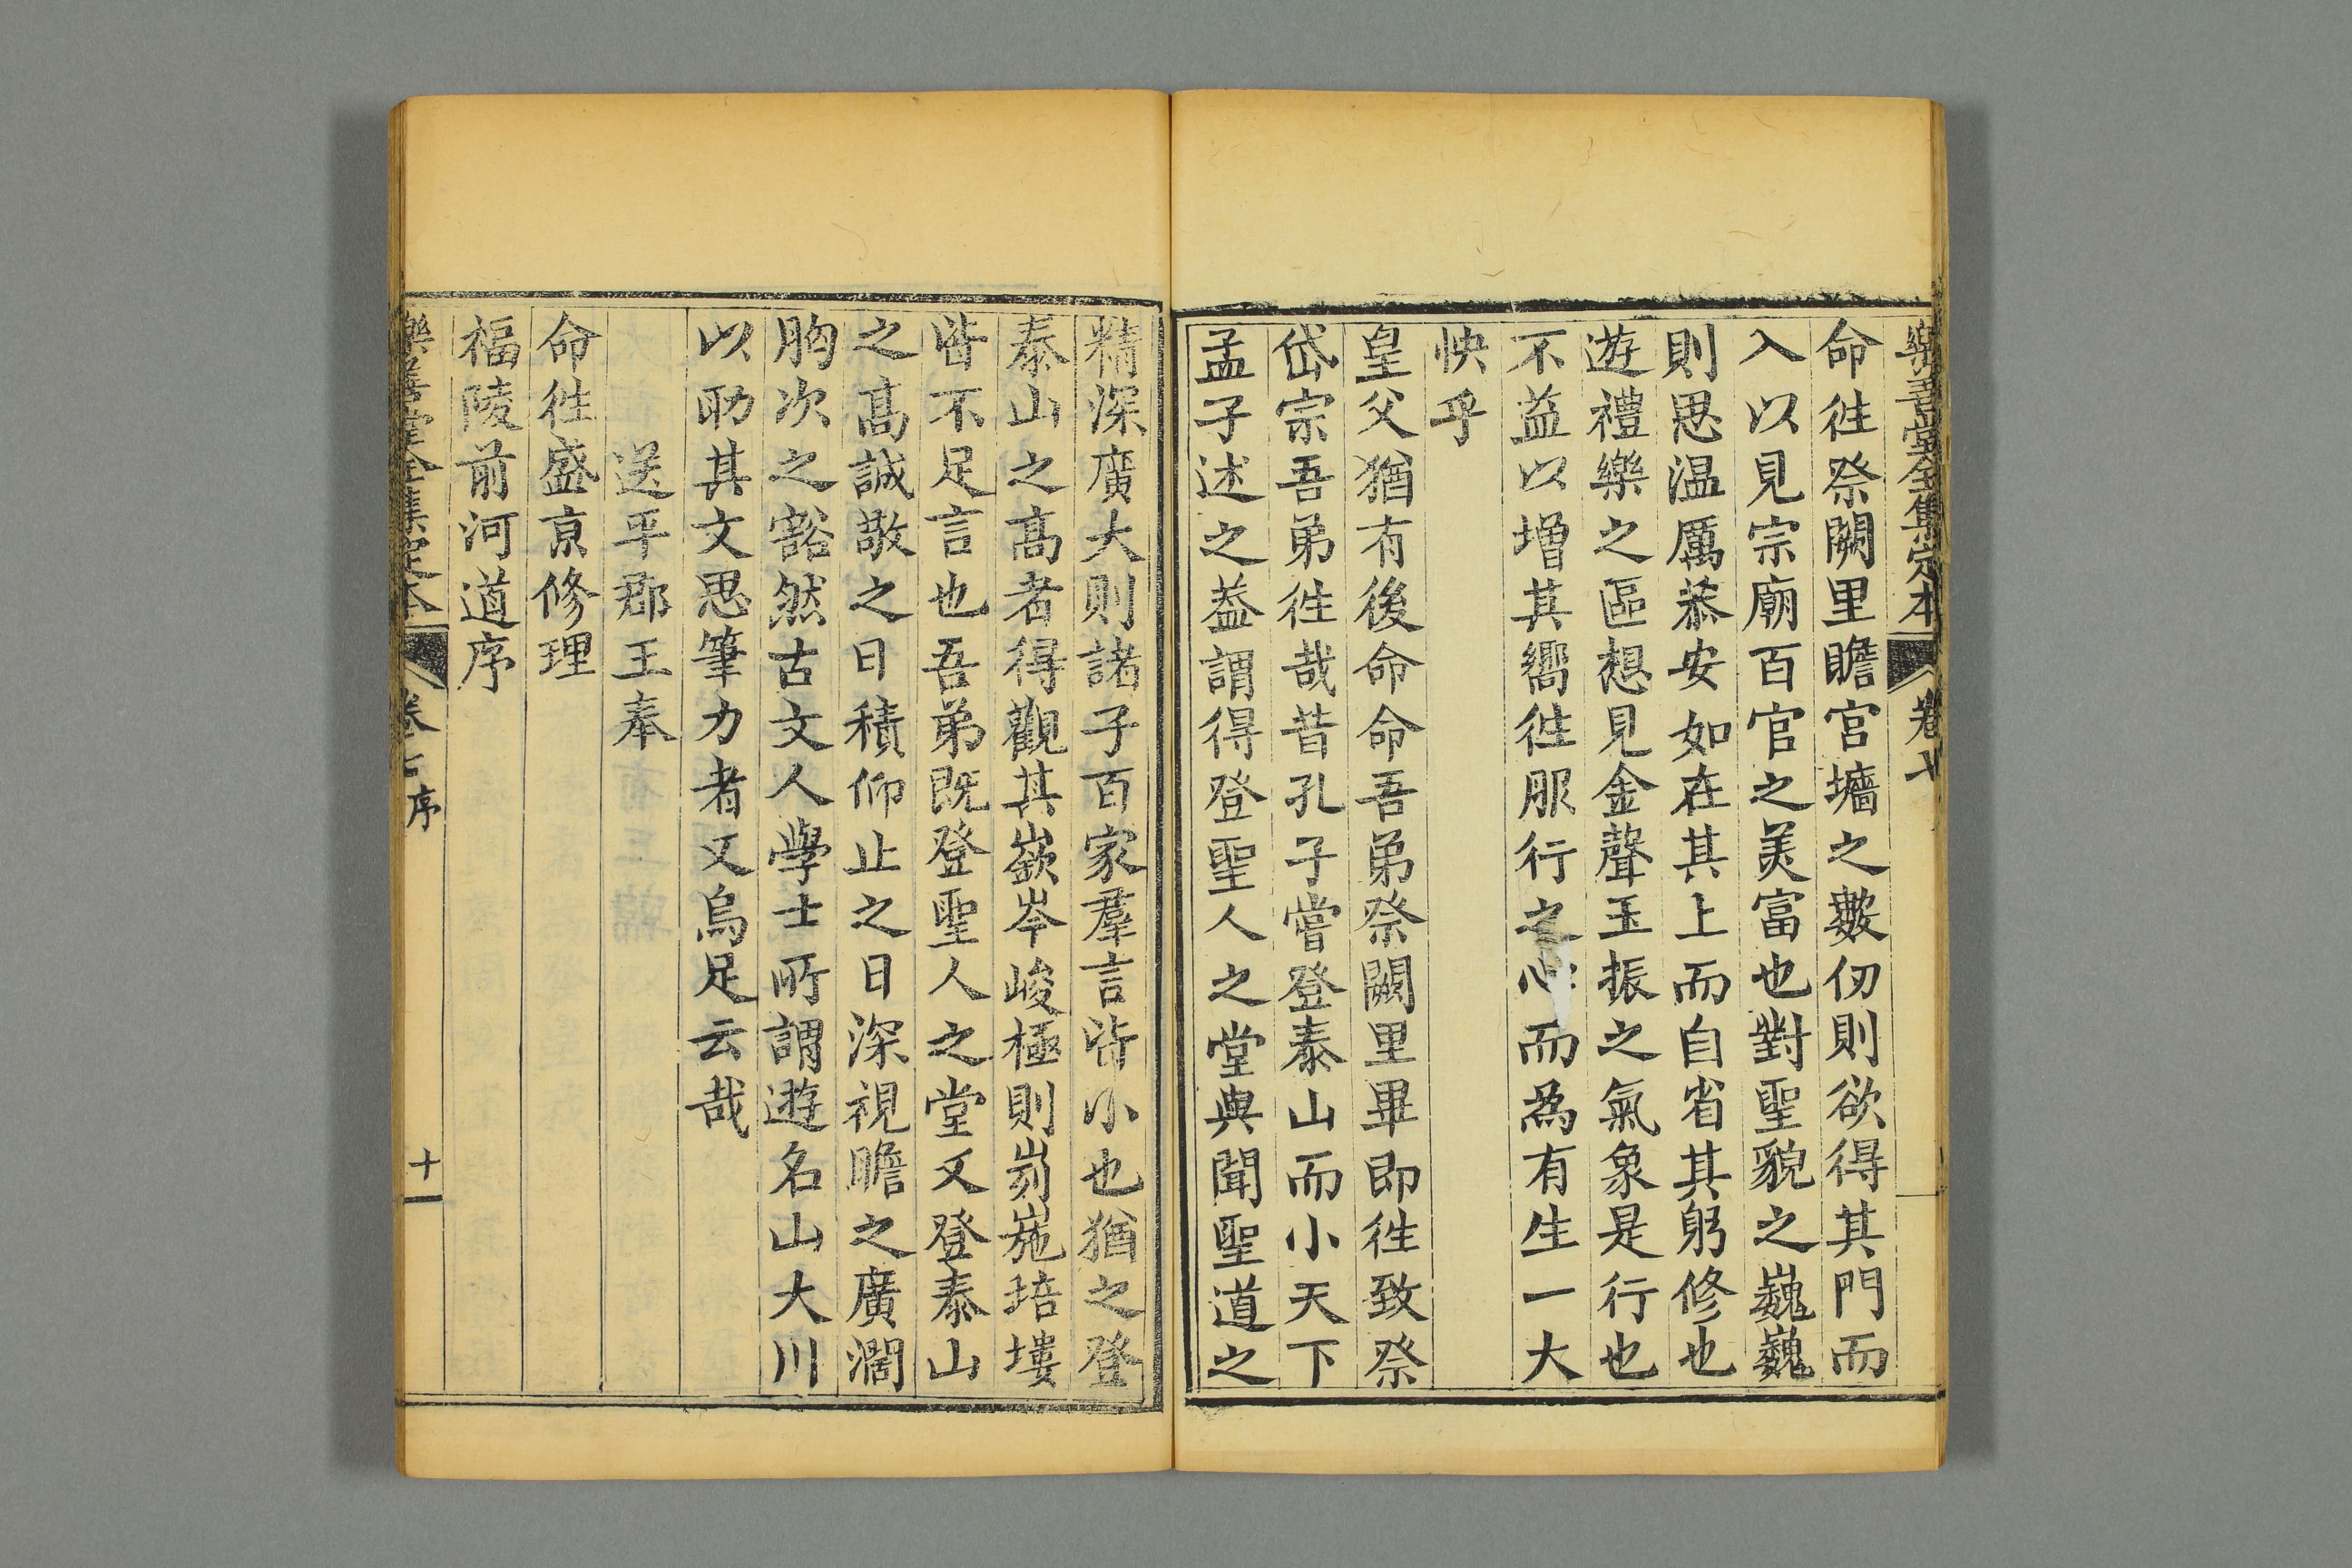 樂善堂全集定本 卷七
命徃祭闕里瞻宫墻之數仞則欲得其門而
入以見宗廟百官之美富也對聖貌之巍巍
則思温厲恭安如在其上而自省其躬修也
遊禮樂之區想見金聲玉振之氣象是行也
不益以增其嚮徃服行之心而為有生一大
快乎
皇父猶有後命命吾弟祭闕里畢即徃致祭
岱宗吾弟徃哉昔孔子嘗登泰山而小天下
孟子述之葢謂得登聖人之堂與聞聖道之
精深廣大則諸子百家羣言皆小也猶之登
泰山之髙者得觀其嶔岑峻極則峛崺培塿
皆不足言也吾弟既登聖人之堂又登泰山
之髙誠敬之日積仰止之日深視瞻之廣濶
胸次之豁然古文人學士所謂遊名山大川
以助其文思筆力者又烏足云哉
送平郡王奉
命徃盛京修理
福陵前河道序
樂善堂全集定本 卷七序 十一